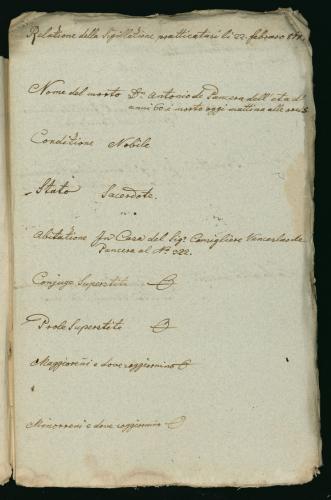 Relatione della Sigillatione pratticatasi li 22. febraro
Nome del morto Dn. Antonio de Pancera dell' età d'
anni 60 è morto oggi mattina alle ore
Conditione Nobile
Stato Sacerdote.
Abitatione In Casa del Sigr. Consigliere Venceslao de
Pancera al No. 322.
Conjuge Superstite
Prole Superstite
Maggiorenni e dove soggiornino
Minorenni e dove soggiornino